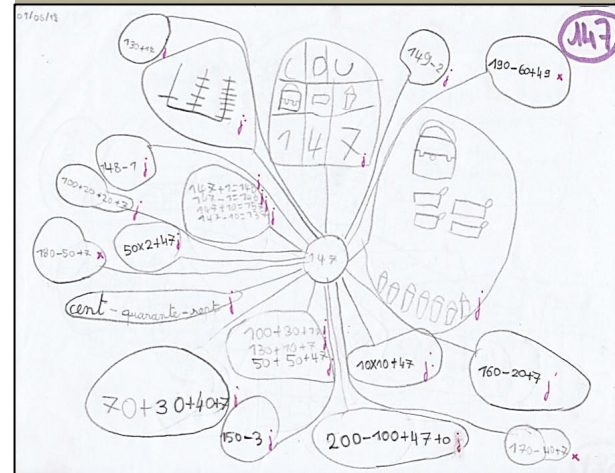 07/06/18
147
130+17 j
C D U
1 4 7 j
149-2 j
190-60+49 x
j
148-1 j
100+20+20+7 j
147+1=148 j
147-1=146 j
147+10=157 j
147-10=137 j
180-50+7 x
50x2+47 j
147
j
cent-quarante-sept j
100+30+17 j
130+10+7 j
50+50+47 j
10x10+47 j
160-20+7 j
70+30+40+7 j
150-3 j
200-100+47+0 j
170-40+7 x